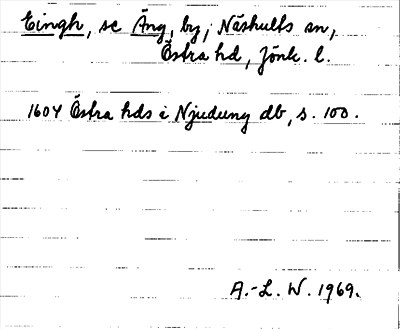 Eingh, se Äng, by, Näshults sn,
Östra hd, Jönk. l.
1604 Östra hds i Njudung db, s. 100.
A.-L. W. 1969.